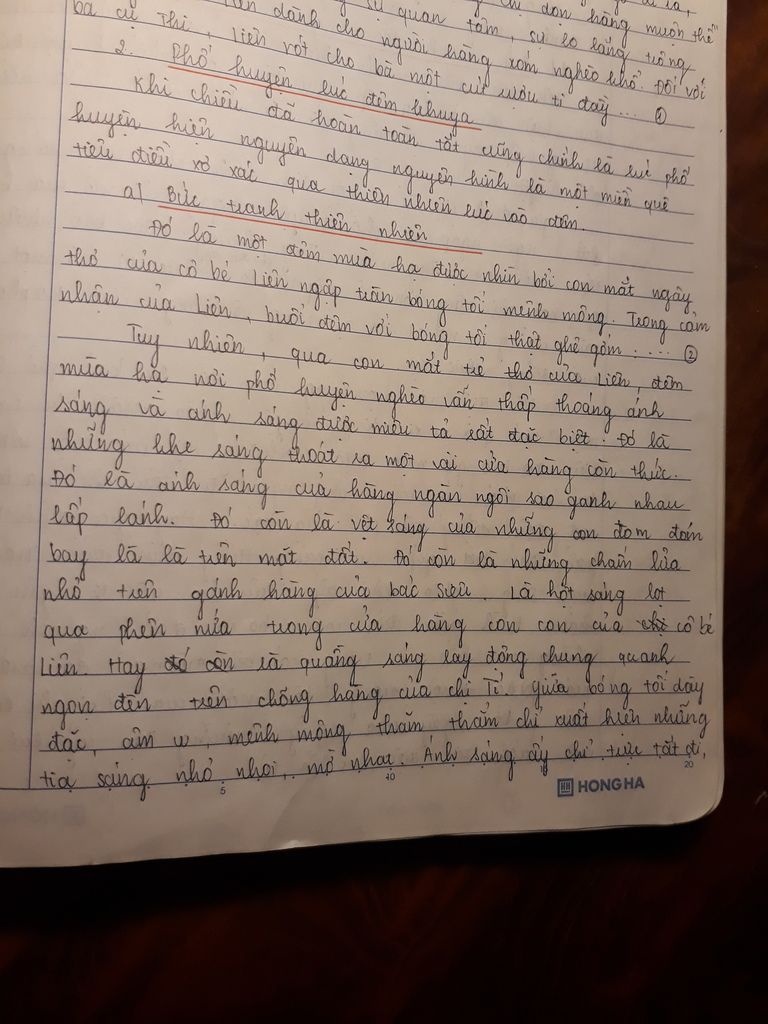 dành cho người hàng xóm nghèo khổ. Đối với
bà cụ Thi, Liên rót cho bà một cút rượu ti đầy... ①
2. Phố huyện lúc đêm khuya
Khi chiều đã hoàn toàn tắt cũng chính là lúc phố
huyện hiện nguyên dạng nguyên hình là một miền quê
tiêu điều xơ xác qua thiên nhiên lúc vào đêm.
a) Bức tranh thiên nhiên
Đó là một đêm mùa hạ được nhìn bởi con mắt ngây
thơ của cô bé Liên ngập tràn bóng tối mênh mông. Trong cảm
nhận của Liên, buổi đêm với bóng tối thật ghê gớm..... ②
Tuy nhiên, qua con mắt trẻ thơ của Liên, đêm
mùa hạ nơi phố huyện nghèo vẫn thấp thoáng ánh
sáng và ánh sáng được miêu tả rất đặc biệt. Đó là
những khe sáng thoát ra một vài cửa hàng còn thức.
Đó là ánh sáng của hàng ngàn ngôi sao ganh nhau
lấp lánh. Đó còn là vệt sáng của những con đom đóm
bay là là trên mặt đất. Đó còn là những chấm lửa
nhỏ trên gánh hàng của bác siêu. Là hột sáng lọt
qua phên nứa trong cửa hàng con con của cô bé
Liên. Hay đó còn là quầng sáng lay động chung quanh
ngọn đèn trên chõng hàng của chị Tí. Giữa bóng tối dày
đặc, âm u, mênh mông thăm thẳm chỉ xuất hiện những
tia sáng nhỏ nhoi, mờ nhạt. Ánh sáng ấy chỉ trực tắt đi,
5 10 20
HONG HA